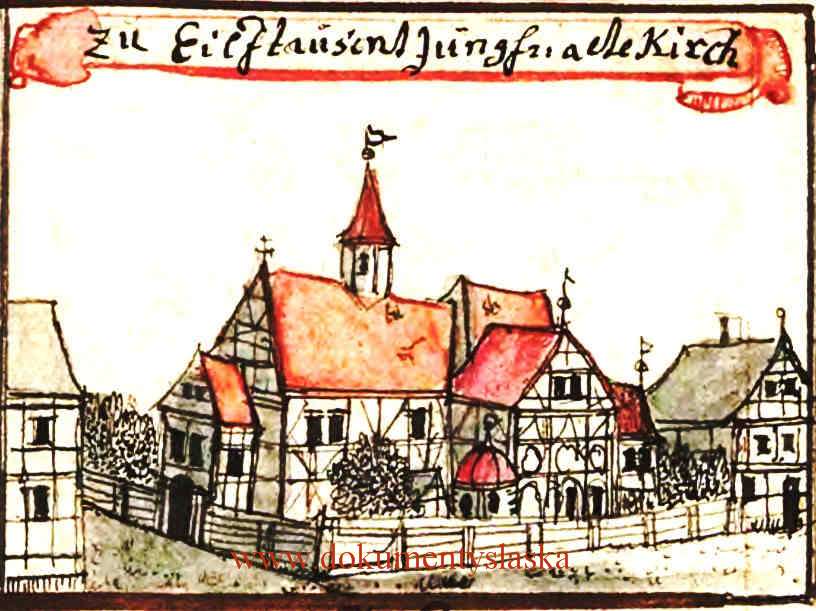 Zu Eilftausent Jungfr: alte Kirch
www.dokumentyslaska